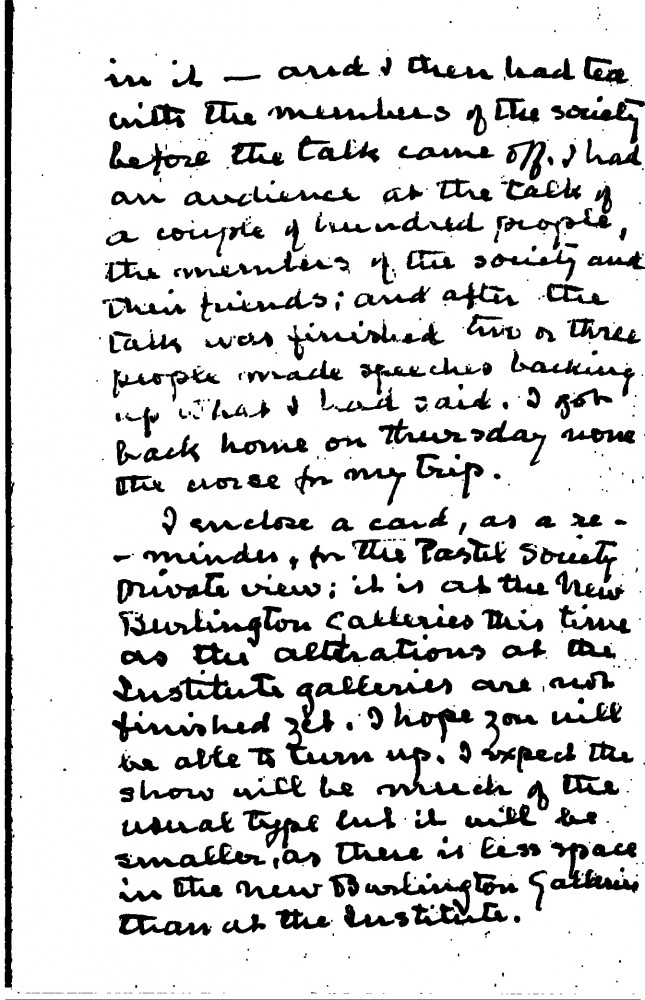 in it — and I then had tea
with the members of the society
before the talk came off. I had
an audience at the talk of
a couple of hundred people,
the members of the society and
their friends; and after the
talk was finished two or three
people made speeches backing
up what I had said. I got
back home on Thursday none
the worse for my trip.
I enclose a card, as a re-
-minder, for the Pastel Society
private view; it is at the New
Burlington Galleries this time
as the alterations at the
Institute galleries are not
finished yet. I hope you will
be able to turn up. I expect the
show will be much of the
usual type but it will be
smaller, as there is less space
in the New Burlington Galleries
than at the Institute.